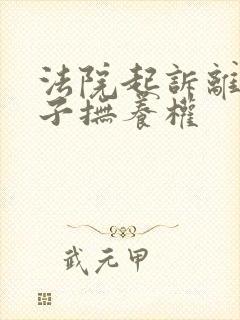 法院起訴離
子撫養權
武元甲